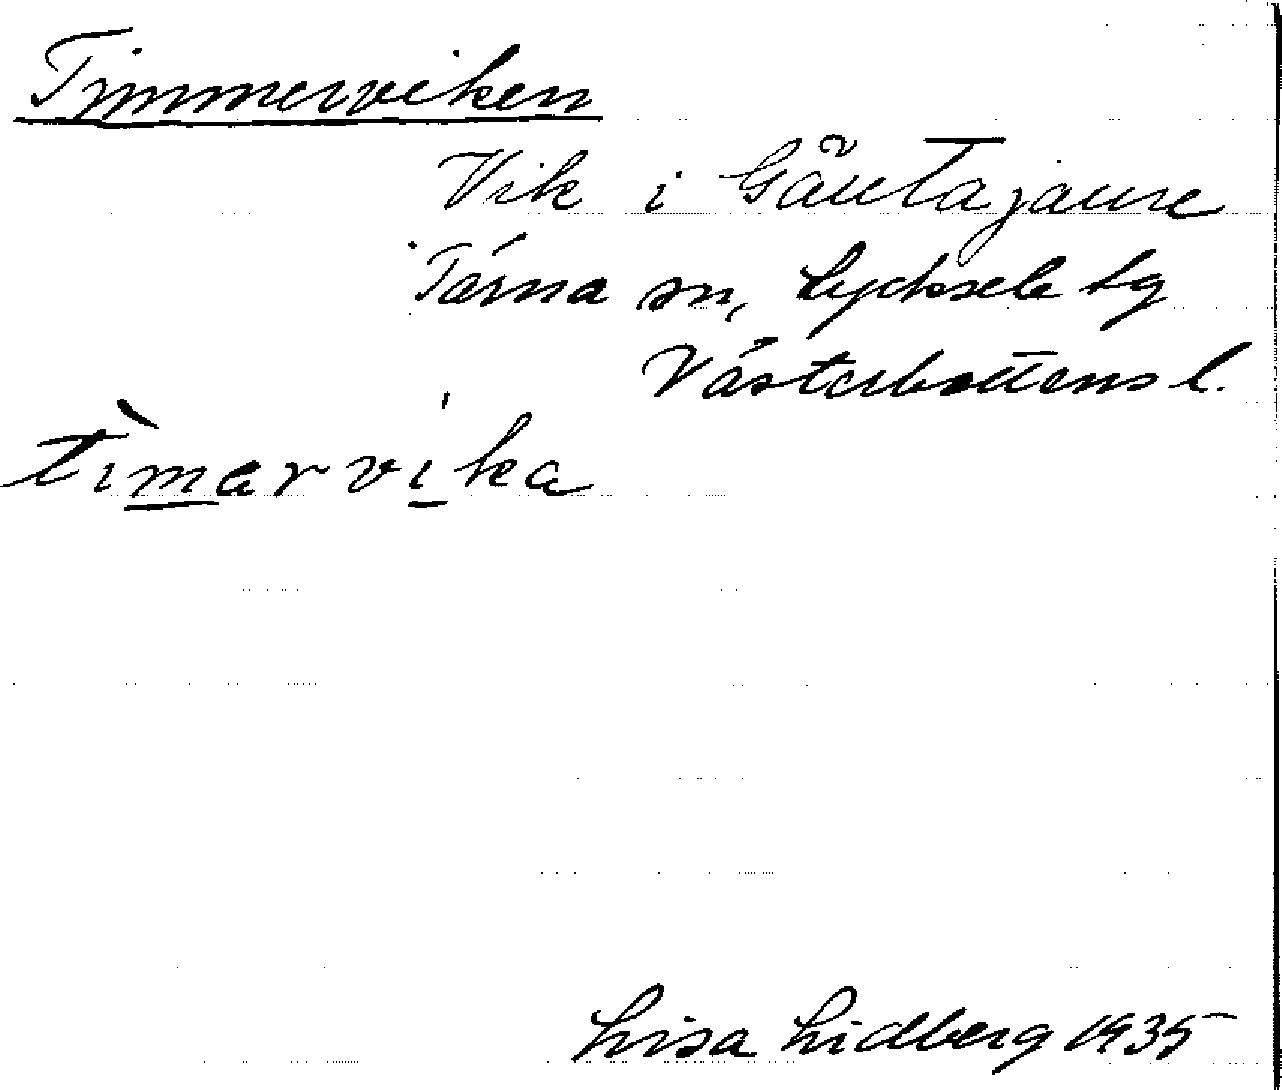 Timmerviken
Vik i Gäutajaure
Tärna sn, Lycksele lg
Västerbottens l.
tìmarvika
Lisa Lidberg 1935